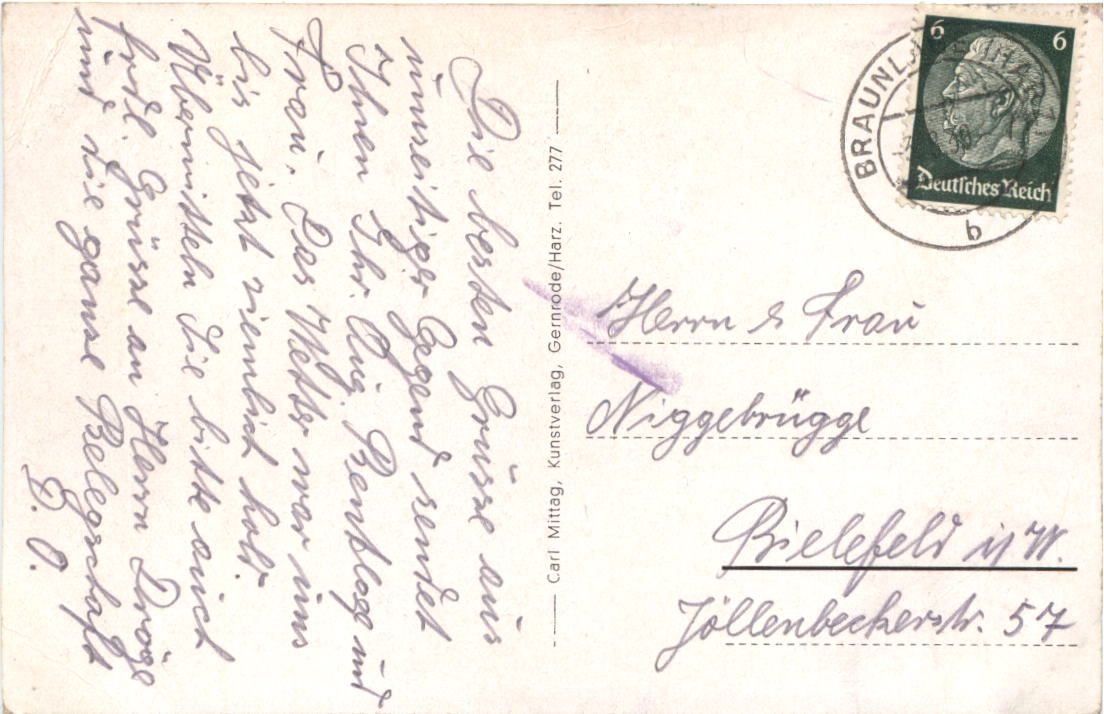 Die besten Grüsse aus
unseitiger Gegend sendet
Ihnen Ihr. Aug. Bentlage und
Frau. Das Wetter war uns
bis jetzt ziemlich hold.
Übermitteln Sie bitte auch
frdl. Grüsse an Herrn Dröge
und die ganze Belegschaft
D. O.
Carl Mittag, Kunstverlag, Gernrode/Harz. Tel. 277
BRAUNL
b
6 6
Deutsches Reich
Herrn & Frau
Niggebrügge
Bielefeld i/W.
Jöllenbeckerstr. 57